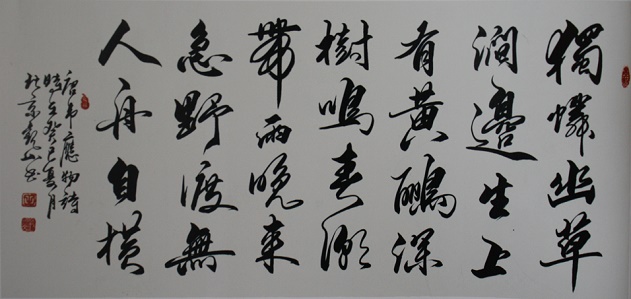 獨憐幽草
澗邊生上
有黃鸝深
樹鳴春潮
帶雨晚來
急野渡無
人舟自橫
唐韦應物詩
時在癸巳夏月
於京